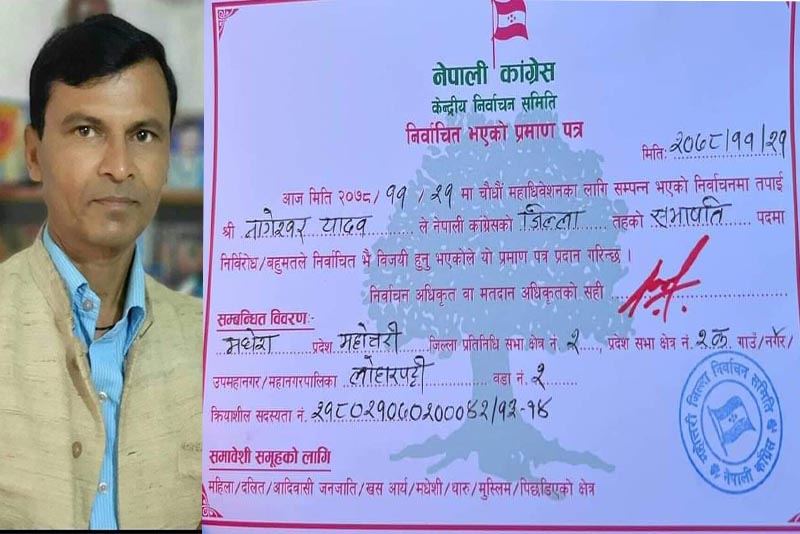 नेपाली कांग्रेस
केन्द्रीय निर्वाचन समिति
निर्वाचित भएको प्रमाण पत्र
मितिः २०७८/११/२१
आज मिति २०७८/११/२१ मा चौधौं महाधिवेशनका लागि सम्पन्न भएको निर्वाचनमा तपाईं
श्री नागेश्वर यादव ले नेपाली कांग्रेसको जिल्ला तहको सभापति पदमा
निर्विरोध/बहुमतले निर्वाचित भै विजयी हुनु भएकोले यो प्रमाण पत्र प्रदान गरिन्छ ।
निर्वाचन अधिकृत वा मतदान अधिकृतको सही
सम्बन्धित विवरणः
मधेश प्रदेश महोत्तरी जिल्ला प्रतिनिधि सभा क्षेत्र नं. २, प्रदेश सभा क्षेत्र नं. २ क गाउँ/नगर/
उपमहानगर/महानगरपालिका लोहारपट्टी वडा नं. २
क्रियाशील सदस्यता नं. २१८०२१०७०२०००४२/१३-१४
समावेशी समूहको लागि
महिला/दलित/आदिवासी जनजाति/खस आर्य/मधेशी/थारु/मुस्लिम/पिछडिएको क्षेत्र
महोत्तरी जिल्ला निर्वाचन समिति
नेपाली कांग्रेस